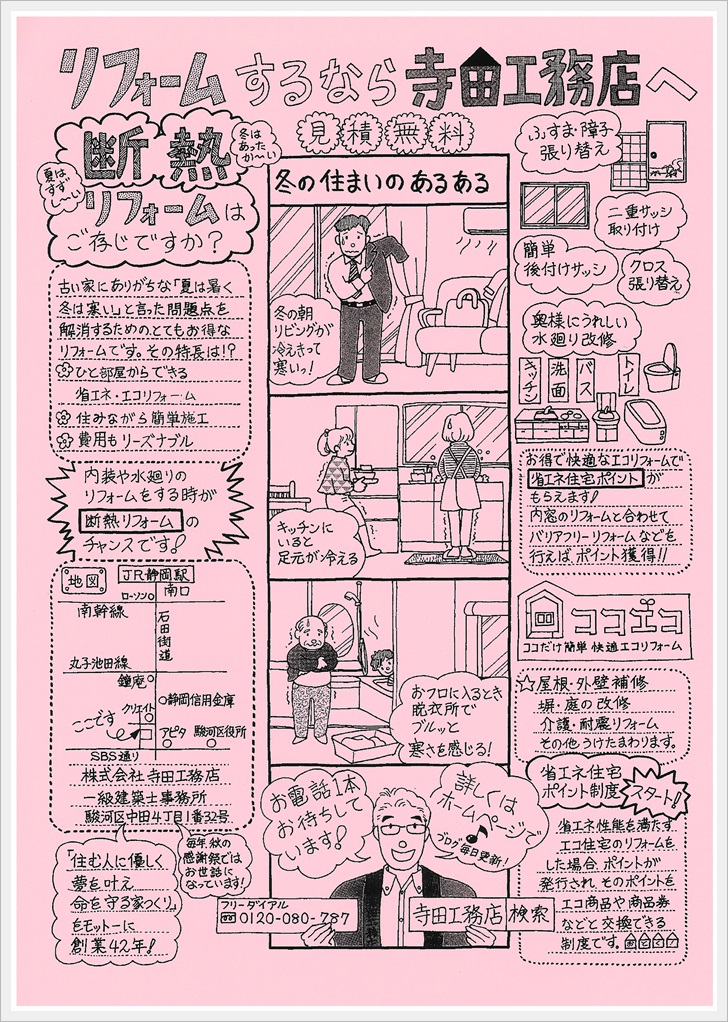 リフォームするなら寺田工務店へ
見積無料
断熱
冬は
あった
か〜い
夏は
すず
し〜い
リフォームは
ご存じですか？
古い家にありがちな「夏は暑く
冬は寒い」と言った問題点を
解消するための、とてもお得な
リフォームです。その特長は!?
ひと部屋からできる
省エネ・エコリフォーム
住みながら簡単施工
費用もリーズナブル
内装や水廻りの
リフォームをする時が
断熱リフォームの
チャンスです!
地図
JR静岡駅
南口
ローソン
南幹線
石田街道
丸子池田線
鐘庵
静岡信用金庫
クリエイト
ここです
アピタ
駿河区役所
SBS通り
株式会社寺田工務店
一級建築士事務所
駿河区中田4丁目1番32号
「住む人に優しく
夢を叶え
命を守る家づくり」
をモットーに
創業42年!
毎年秋の
感謝祭では
お世話に
なっています!
冬の住まいのあるある
冬の朝
リビングが
冷えきって
寒いっ!
キッチンに
いると
足元が冷える
おフロに入るとき
脱衣所で
ブルッと
寒さを感じる!
お電話1本
お待ちして
います!
詳しくは
ホームページで
ブログ毎日更新!
フリーダイアル
0120-080-787
寺田工務店 検索
ふすま・障子
張り替え
二重サッシ
取り付け
簡単
後付けサッシ
クロス
張り替え
奥様にうれしい
水廻り改修
キッチン
洗面
バス
トイレ
お得で快適なエコリフォームで
省エネ住宅ポイントが
もらえます!
内窓のリフォームと合わせて
バリアフリーリフォームなどを
行えば、ポイント獲得!!
ココエコ
ココだけ簡単 快適エコリフォーム
☆屋根・外壁補修
塀・庭の改修
介護・耐震リフォーム
その他うけたまわります。
省エネ住宅
ポイント制度
スタート!
省エネ性能を満たす
エコ住宅のリフォームを
した場合、ポイントが
発行され、そのポイントを
エコ商品や商品券
などと交換できる
制度です。